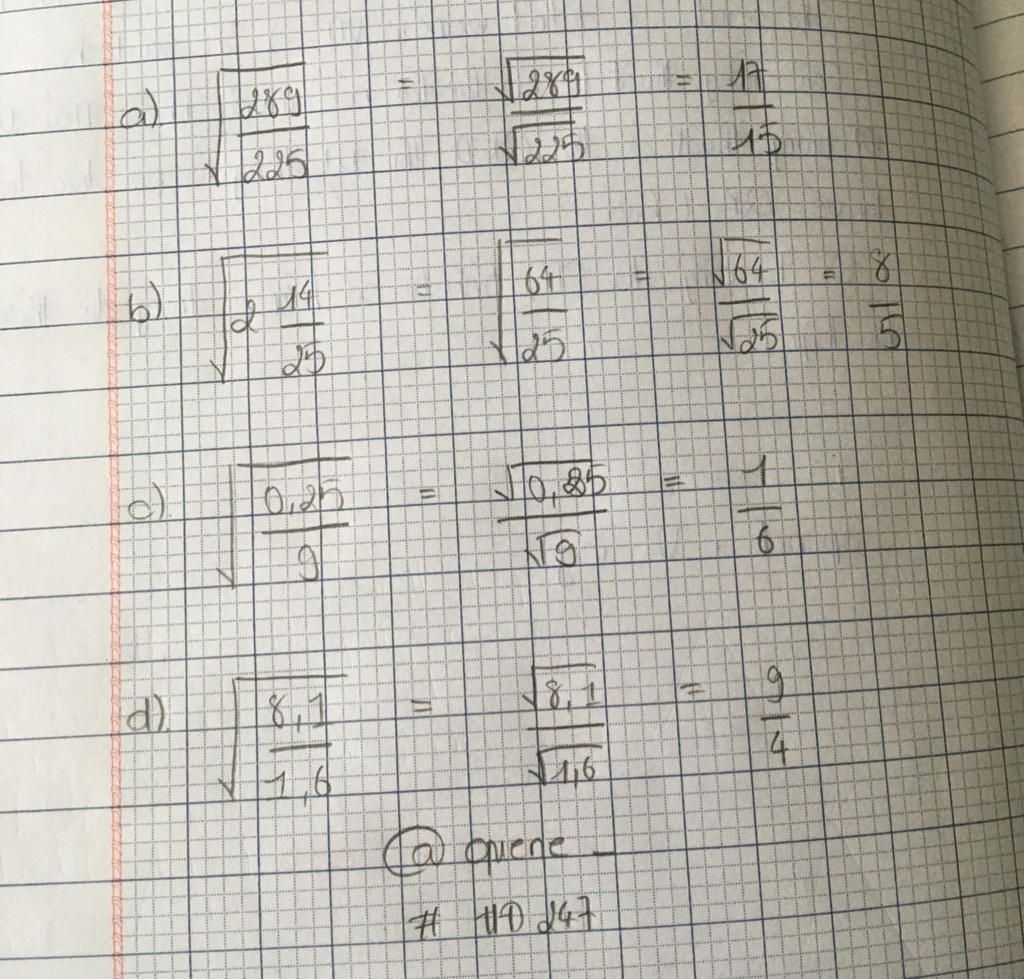 a) √(289/225) = √289/√225 = 17/15
b) √(2 14/25) = √(64/25) = √64/√25 = 8/5
c) √(0,25/9) = √0,25/√9 = 1/6
d) √(8,1/1,6) = √8,1/√1,6 = 9/4
@ quene _
# HD 247